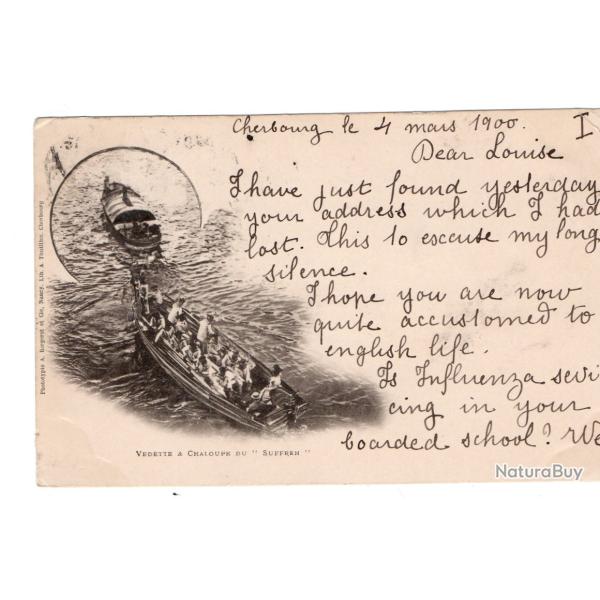 Cherbourg le 4 mars 1900.
I
Dear Louise
I have just found yesterday
your address which I had
lost. This to excuse my long
silence.
I hope you are now
quite accustomed to
english life.
Is Influenza sevi
cing in your
boarded school? We
VEDETTE & CHALOUPE DU " SUFFREN "
Phototypie A. Bergeret et Cie, Nancy. Lib. A. Teuillier, Cherbourg
NaturaBuy